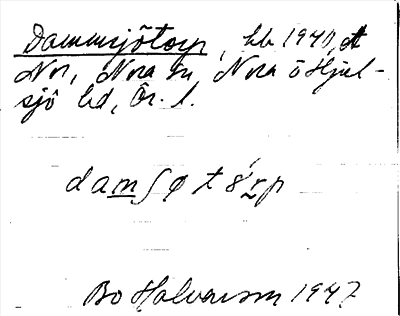 Dammsjötorp, hb 1940, 
Nor, Nora sn, Nora o Hjul-
sjö hd, Ör. l.
damʃøtörp
Bo Halvarson 1947